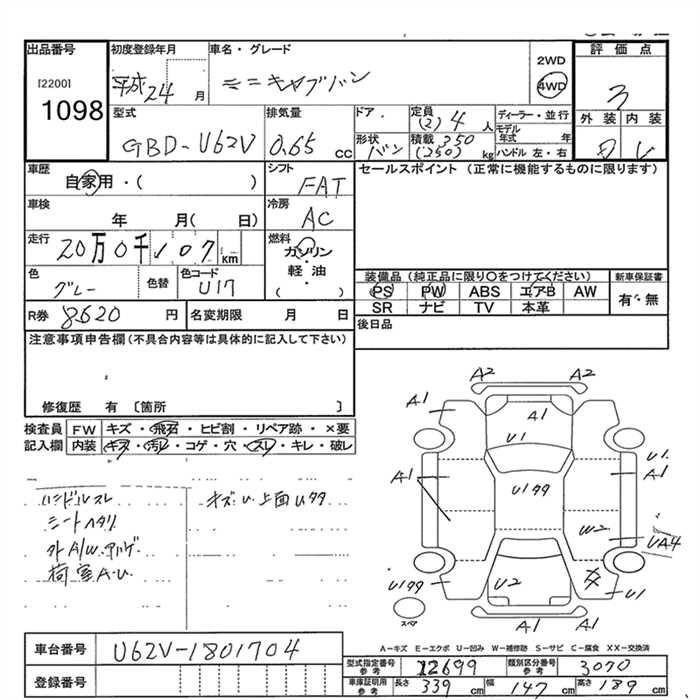 出品番号
[2200]
1098
初度登録年月
平成24月
車名・グレード
ミニキャブバン
2WD
4WD
評価点
3
外装 内装
型式
GBD-U62V
排気量
0.65 cc
ドア
定員
(2) 4 人
形状
バン
積載 350
(250) kg
ディーラー・並行
モデル年式 年
ハンドル 左・右
車歴
自家用・( )
シフト
FAT
セールスポイント(正常に機能するものに限ります)
車検
年 月( 日)
冷房
AC
走行
20万0千107 km
燃料
ガソリン
・
軽油
( )
色
グレー
色替
色コード
U17
装備品(純正品に限り〇をつけてください)
PS PW ABS エアB AW
SR ナビ TV 本革
新車保証書
有・無
R券 8620 円
名変期限 月 日
後日品
注意事項申告欄(不具合内容等は具体的に記入して下さい)
修復歴 有 〔箇所 〕
検査員記入欄
FW キズ・飛石・ヒビ割・リペア跡・×要
内装 キズ・汚レ・コゲ・穴・スレ・キレ・破レ
ハンドルスレ
シートヘタリ
荷室A.U.
キズU上面Uタタ
A2 A2
A1 A1 A1
U1
U1
A1 A1
U1タタ
W2
UA4
U1タタ U2 U1
スペア
A1 A1
A-キズ E-エクボ U-凹み W-補修跡 S-サビ C-腐食 XX-交換済
車台番号
U62V-1801704
登録番号
型式指定番号 参考 12699
類別区分番号 参考 3070
車庫証明用 参考 長さ 339 cm 幅 147 cm 高さ 189 cm